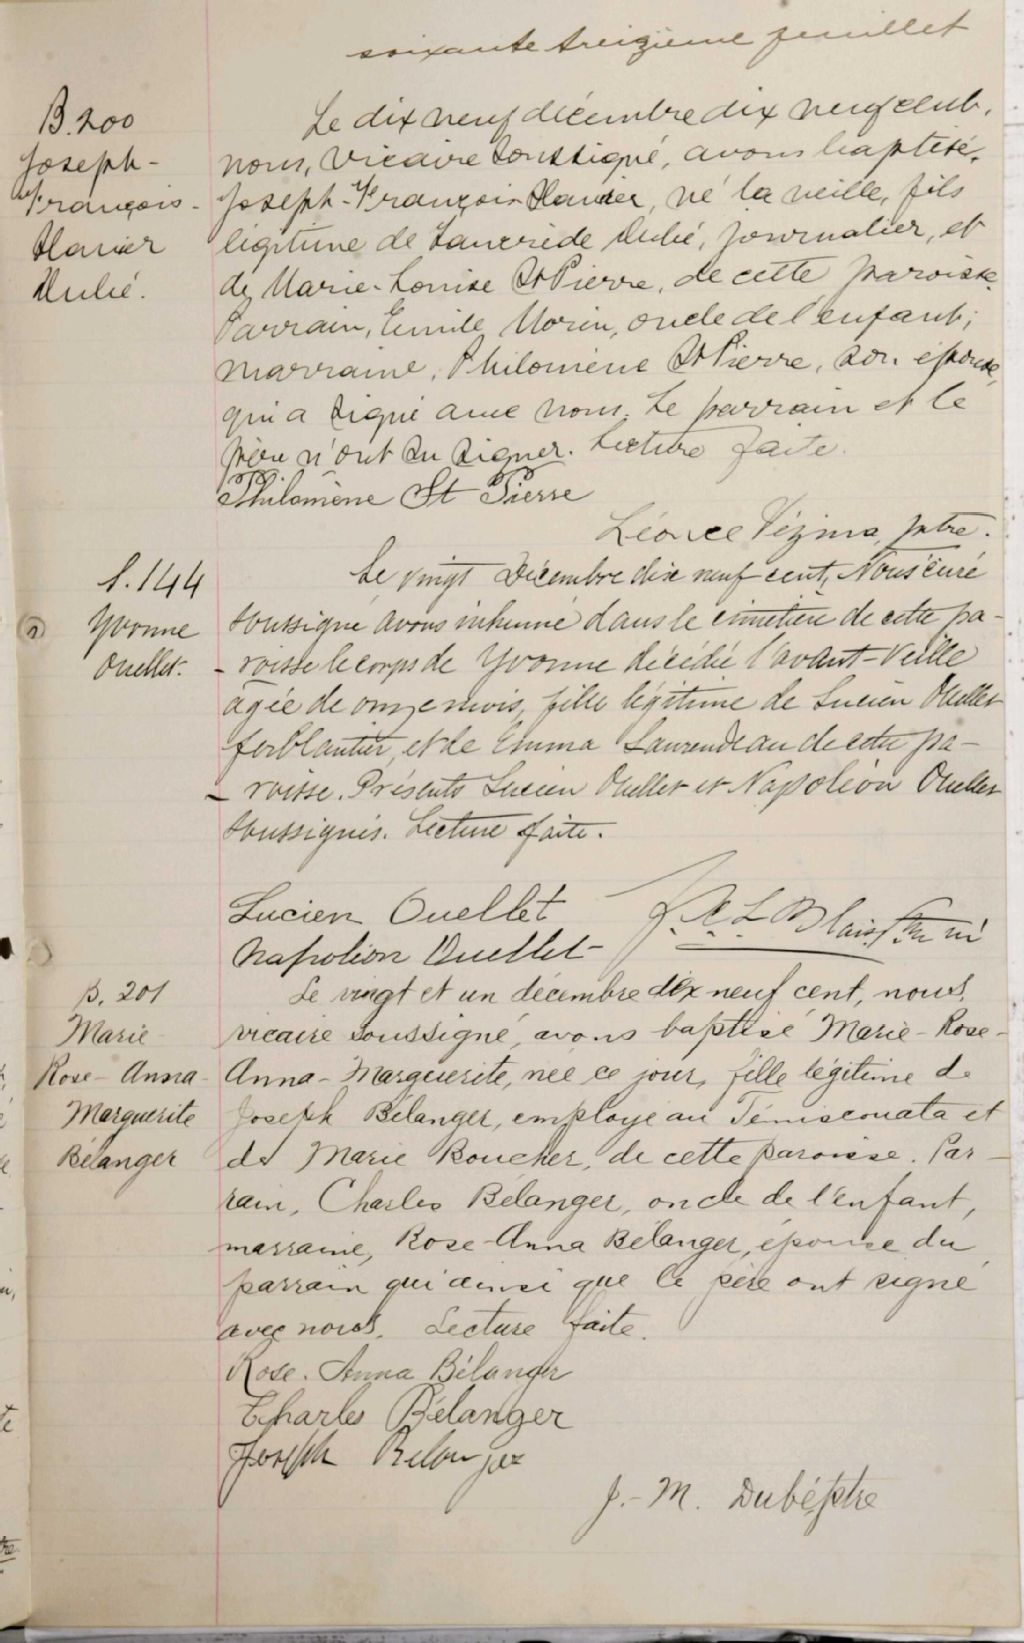 soixante treizième feuillet
B. 200
Joseph-
François-
Xavier
Dubé.
Le dix neuf décembre dix neuf cent,
nous, vicaire soussigné, avons baptisé,
Joseph-François-Xavier, né la veille, fils
légitime de Tancrède Dubé, journalier, et
de Marie-Louise St Pierre, de cette paroisse.
Parrain, Emile Morin, oncle de l'enfant;
marraine, Philomène St Pierre, son épouse,
qui a signé avec nous. Le parrain et le
père n'ont su signer. Lecture faite.
Philomène St Pierre
Léonce Vézina, ptre.
S. 144
Yvonne
Ouellet.
Le vingt Décembre dix neuf cent, Nous curé
soussigné avons inhumé dans le cimetière de cette pa-
- roisse le corps de Yvonne décédée l'avant-veille
agée de onze mois, fille légitime de Lucien Ouellet
ferblantier, et de Emma Laurendeau de cette pa-
- roisse. Présents Lucien Ouellet et Napoléon Ouellet
soussignés. Lecture faite.
Lucien Ouellet
Napoléon Ouellet
Blais Ptre
B. 201
Marie
Rose-Anna-
Marguerite
Bélanger
Le vingt et un décembre dix neuf cent, nous,
vicaire soussigné, avons baptisé Marie-Rose-
Anna-Marguerite, née ce jour, fille légitime de
Joseph Bélanger, employé au Témiscouata et
de Marie Boucher, de cette paroisse. Par-
rain, Charles Bélanger, oncle de l'enfant,
marraine, Rose-Anna Bélanger, épouse du
parrain qui ainsi que le père ont signé
avec nous. Lecture faite.
Rose-Anna Bélanger
Charles Bélanger
Joseph Belanger
J.-M. Dubé, ptre